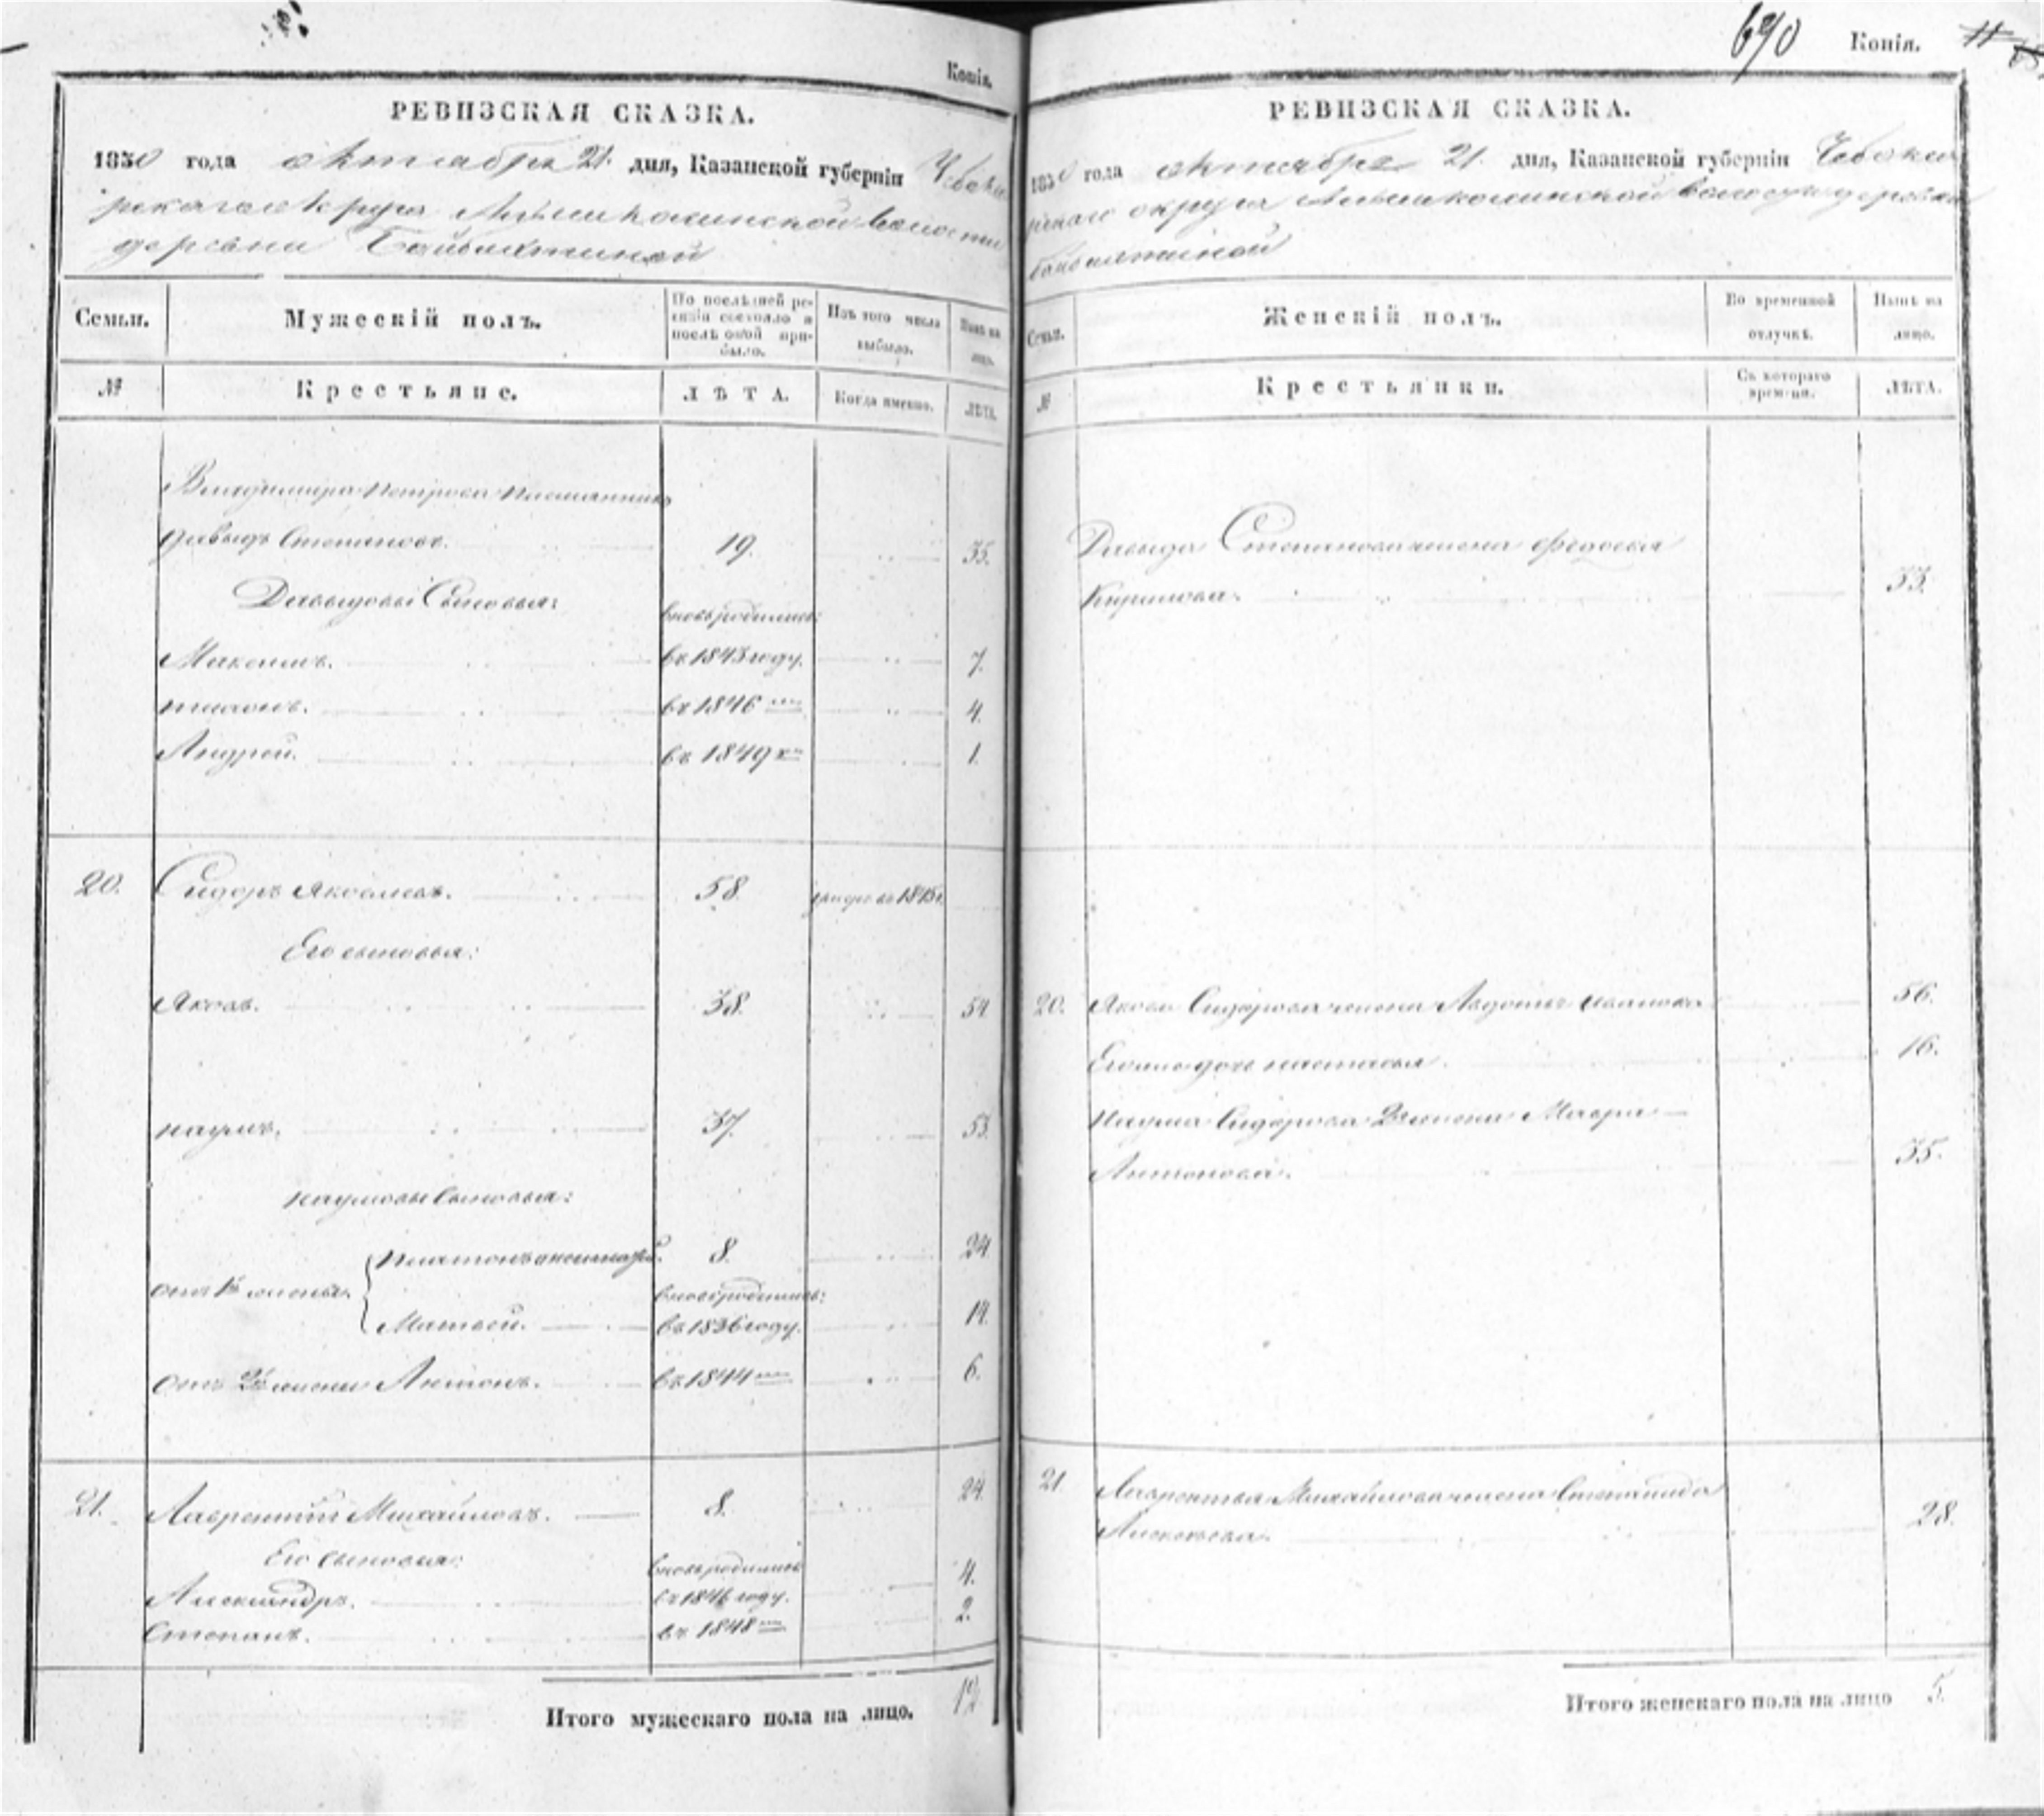 Копія.
РЕВИЗСКАЯ СКАЗКА.
1850 года октября 21. дня, Казанской губерніи Чебокса
рскаго округа Алымкасинской волости
деревни Байбахтиной
Семьи. Мужескій полъ. По послѣдней ре- Изъ того числа Нынѣ на
визіи состояло и выбыло. лицо.
послѣ оной при-
было.
№ Крестьяне. ЛѢТА. Когда именно. ЛѢТА.
Владимира Петрова племянникъ
Давыдъ Степановъ. 19. 35.
Давыдовы Сыновья: вновь родились:
Максимъ. въ 1843 году. 7.
въ 1846 4.
Андрей. въ 1849 1.
20. Сидоръ Яковлевъ. 58. въ 1845
Его сыновья:
Яковъ. 38. 54
Наумъ. 37. 53.
Наумовы Сыновья:
Платонъ 8. 24
отъ 1й жены. вновь родились:
Матвей. въ 1836 году. 14.
отъ 2й жены Антонъ. въ 1844 6.
21. Лаврентий Михайловъ. 8. 24.
Его Сыновья: вновь родились
Александръ. въ 1846 году. 4.
Степанъ. въ 1848 2.
Итого мужескаго пола на лицо. 12.
690 Копія. 11
РЕВИЗСКАЯ СКАЗКА.
1850 года октября 21. дня, Казанской губерніи Чебокса
рскаго округа Алымкасинской волости деревни
Байбахтиной
Семьи. Женскій полъ. Во временной Нынѣ на
отлучкѣ. лицо.
№ Крестьянки. Съ котораго ЛѢТА.
времени.
Давыда Степанова жена Федосья
Кирилова. 33.
20. Якова Сидорова жена Авдотья Иванова 56.
Его дочь Настасья. 16.
Наума Сидорова 2я жена Мавра
Антонова. 35.
21 Лаврентья Михайлова жена Степанида
28.
Итого женскаго пола на лицо 5.